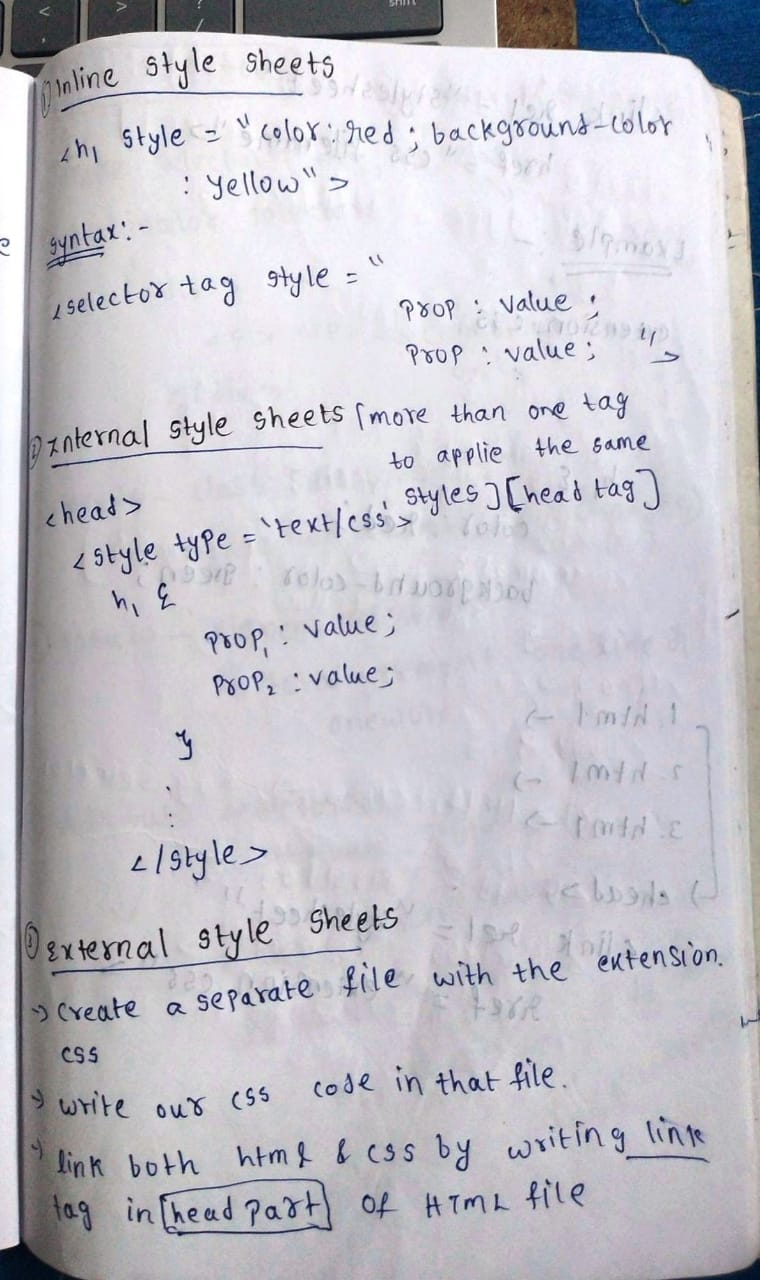 ① Inline style sheets
<h1 style = "color: red; background-color
: yellow">
syntax:-
<selector tag style = "
prop : value ;
prop : value ; ">
② Internal style sheets [more than one tag
to applie the same
styles] [head tag]
<head>
<style type = 'text/css'>
h1 {
prop1 : value;
prop2 : value;
}
:
</style>
③ External style sheets
→ create a separate file with the extension.
css
→ write our css code in that file.
→ link both html & css by writing link
tag in [head part] of HTML file